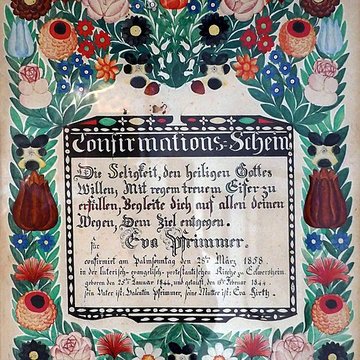 Confirmations-Schein
Die Seligkeit, den heiligen Gottes
Willen, Mit regem treuem Eifer zu
erfüllen, Begleite dich auf allen deinen
Wegen, Dem Ziel entgegen.
für
Eva Pfrimmer.
confirmirt am Palmsonntag den 28ten März 1858.
in der luterisch-evangelisch-protestantischen Kirche zu Eswersheim.
geboren den 25ten Januar 1844, und getauft, den 16ten Februar 1844.
Sein Vater ist: Valentin Pfrimmer, seine Mutter ist: Eva